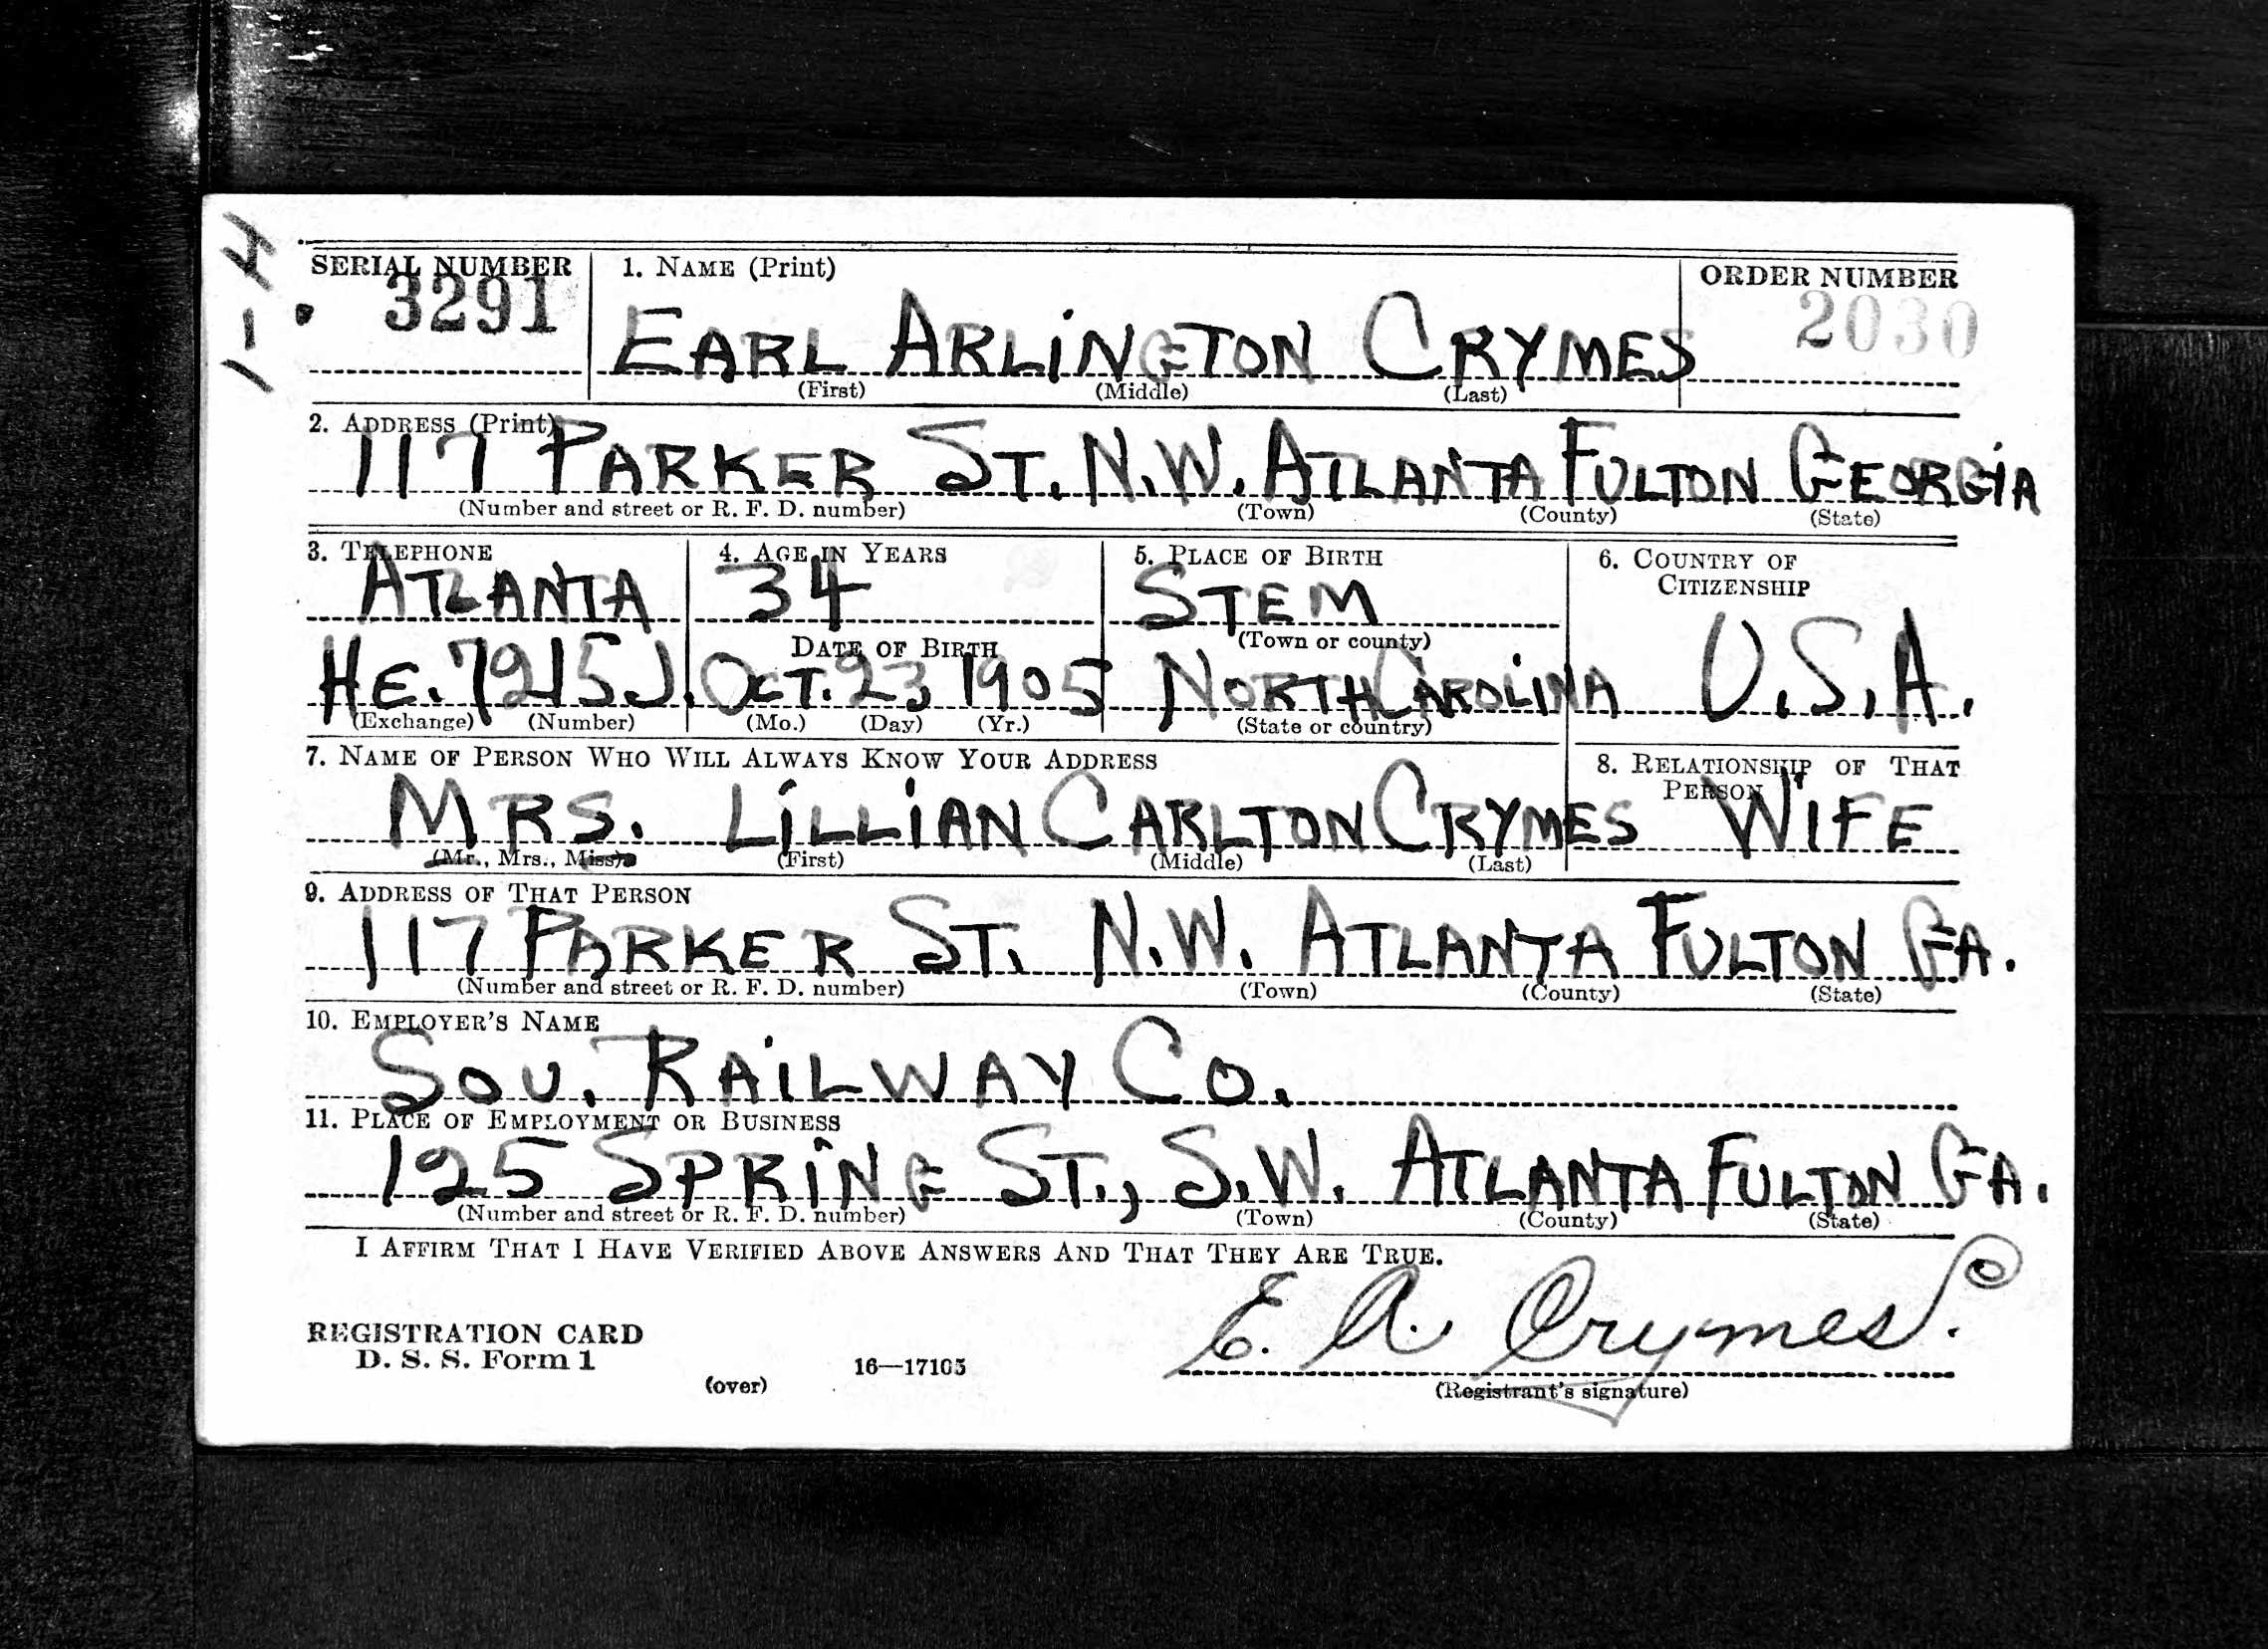 1-4
SERIAL NUMBER
3291
1. NAME (Print)
EARL ARLINGTON CRYMES
(First) (Middle) (Last)
ORDER NUMBER
2030
2. ADDRESS (Print)
117 PARKER ST. N.W. ATLANTA FULTON GEORGIA
(Number and street or R. F. D. number) (Town) (County) (State)
3. TELEPHONE
ATLANTA
HE. 7215J.
(Exchange) (Number)
4. AGE IN YEARS
34
DATE OF BIRTH
OCT. 23 1905
(Mo.) (Day) (Yr.)
5. PLACE OF BIRTH
STEM
(Town or county)
NORTH CAROLINA
(State or country)
6. COUNTRY OF
CITIZENSHIP
U.S.A.
7. NAME OF PERSON WHO WILL ALWAYS KNOW YOUR ADDRESS
MRS. LILLIAN CARLTON CRYMES
(Mr., Mrs., Miss) (First) (Middle) (Last)
8. RELATIONSHIP OF THAT
PERSON
WIFE
9. ADDRESS OF THAT PERSON
117 PARKER ST. N.W. ATLANTA FULTON GA.
(Number and street or R. F. D. number) (Town) (County) (State)
10. EMPLOYER'S NAME
SOU. RAILWAY CO.
11. PLACE OF EMPLOYMENT OR BUSINESS
125 SPRING ST., S.W. ATLANTA FULTON GA.
(Number and street or R. F. D. number) (Town) (County) (State)
I AFFIRM THAT I HAVE VERIFIED ABOVE ANSWERS AND THAT THEY ARE TRUE.
E. A. Crymes.
(Registrant's signature)
REGISTRATION CARD
D. S. S. Form 1
(over)
16—17105